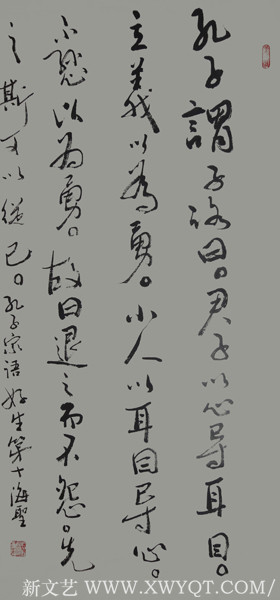 孔子謂子路曰。君子以心导耳目。
立義以為勇。小人以耳目导心。
不愻以为勇。故曰退之而不怨。先
之斯可以從已。孔子家語好生第十海聖
新文艺 WWW.XWYQT.COM